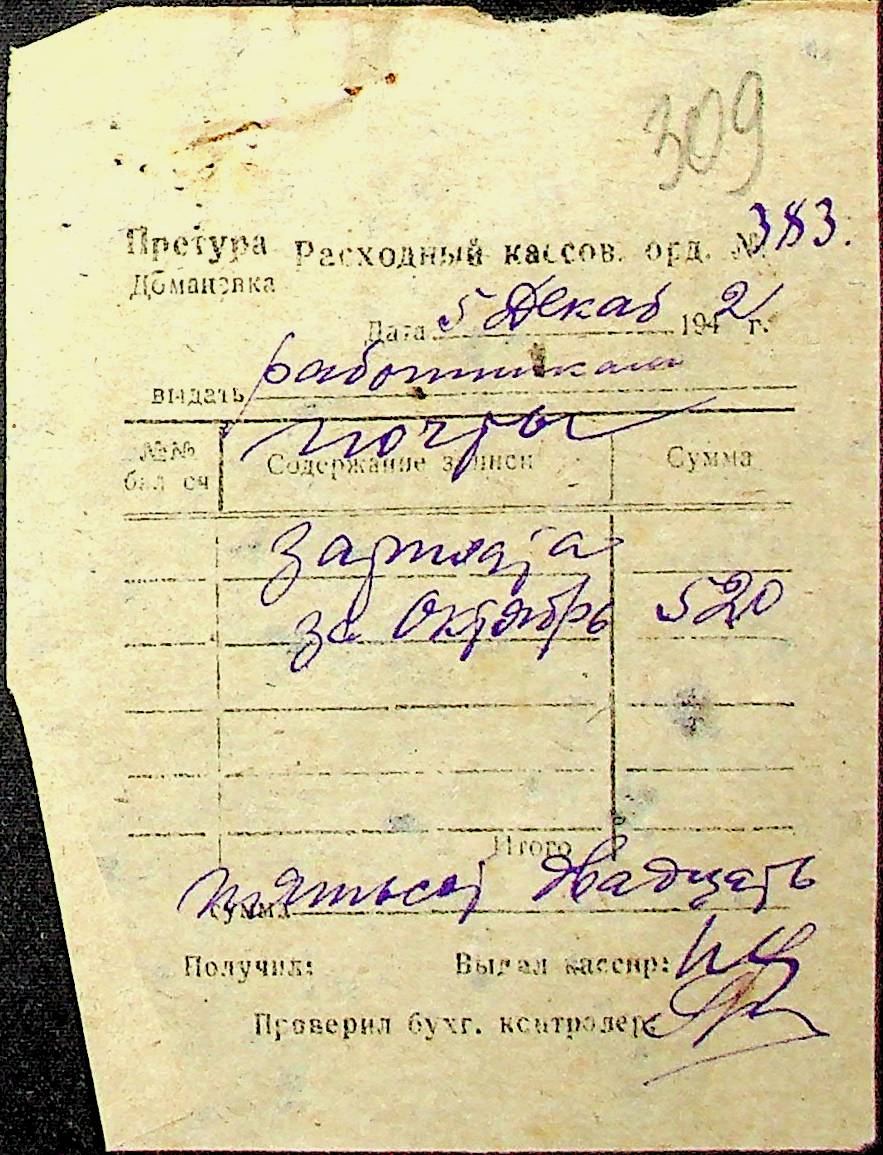 309
Претура Расходный кассов. орд. № 383.
Доманевка
Дата 5 Декаб 1942 г.
выдать работникам
почты
№№ бал сч Содержание записи Сумма
зарплата
за Октябрь 520
Итого
сумма пятьсот двадцать
Получил: Выдал кассир:
Проверил бухг. контролер: